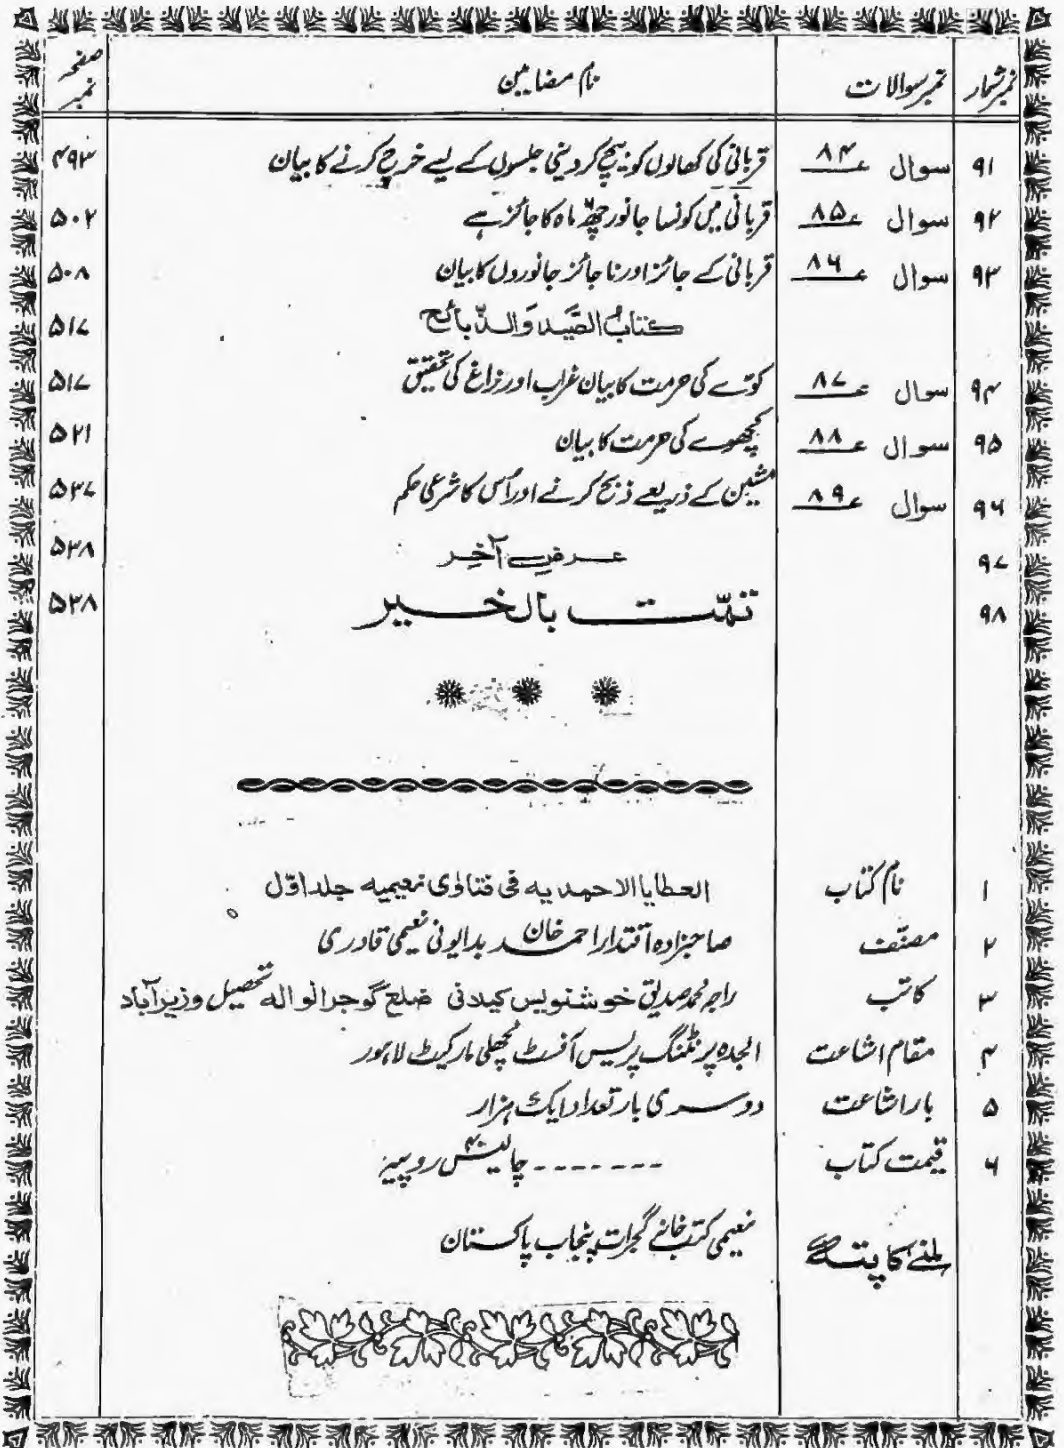 نمبر شمار نمبر سوالات نام مضامین صفحہ نمبر
۹۱ سوال ع۸۴ قربانی کی کھالوں کو بیچ کر دینی جلسوں کے لیے خرچ کرنے کا بیان ۴۹۳
۹۲ سوال ع۸۵ قربانی میں کونسا جانور چھ ماہ کا جائز ہے ۵۰۲
۹۳ سوال ع۸۶ قربانی کے جائز اور نا جائز جانوروں کا بیان ۵۰۸
کتابُ الصَّید وَالذّبائح ۵۱۷
۹۴ سوال ع۸۷ کوّے کی حرمت کا بیان غراب اور زاغ کی تحقیق ۵۱۷
۹۵ سوال ع۸۸ کچھوے کی حرمت کا بیان ۵۲۱
۹۶ سوال ع۸۹ مشین کے ذریعے ذبح کرنے اور اُس کا شرعی حکم ۵۳۷
۹۷ عرضِ آخر ۵۳۸
۹۸ تمّت بالخیر ۵۳۸
۱ نام کتاب العطایا الاحمدیہ فی فتاوٰی نعیمیہ جلد اوّل
۲ مصنّف صاحبزادہ اقتدار احمد خان بدایونی نعیمی قادری
۳ کاتب راجہ محمد صدیق خوشنویس کیلانی ضلع گوجرانوالہ تحصیل وزیرآباد
۴ مقام اشاعت پرنٹنگ پریس آفسٹ مچھلی مارکیٹ لاہور
۵ بار اشاعت دوسری بار تعداد ایک ہزار
۶ قیمت کتاب ------- چالیس ۴۰ روپیہ
ملنے کا پتہ نعیمی کتب خانے گجرات پنجاب پاکستان